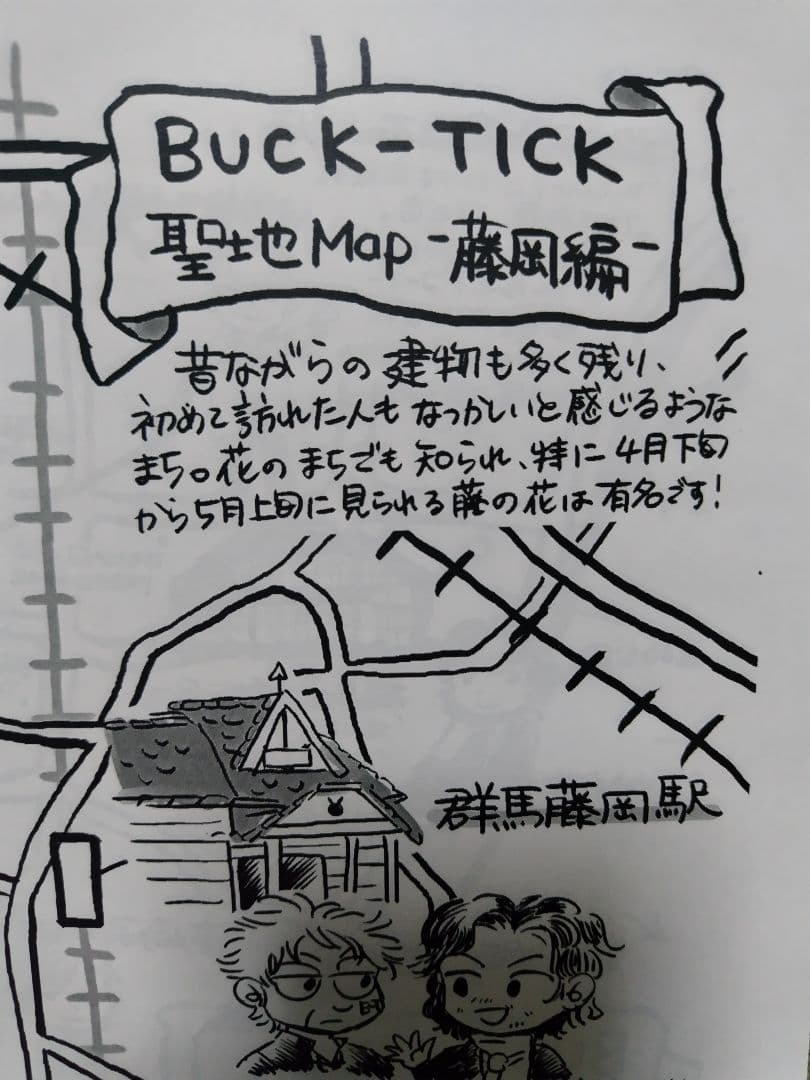 BUCK-TICK
聖地Map -藤岡編-
昔ながらの建物も多く残り、
初めて訪れた人もなつかしいと感じるような
まち。花のまちでも知られ、特に4月下旬
から5月上旬に見られる藤の花は有名です!
群馬藤岡駅